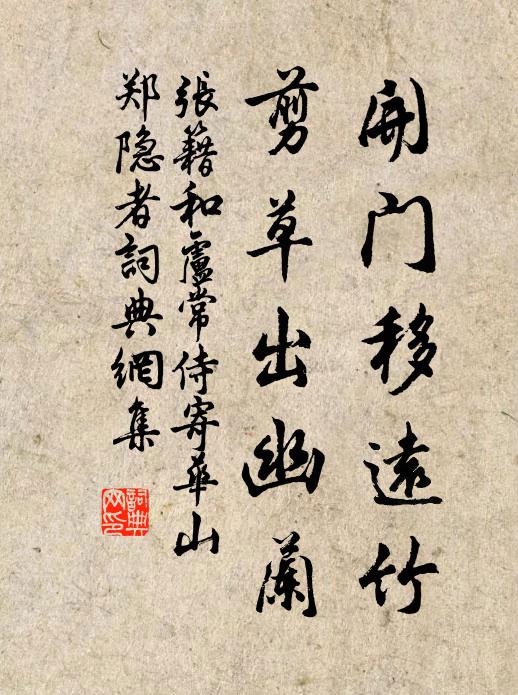 開門移遠竹
剪草出幽蘭
張籍和盧常侍寄華山
郑隐者詞典網集
詞典網印